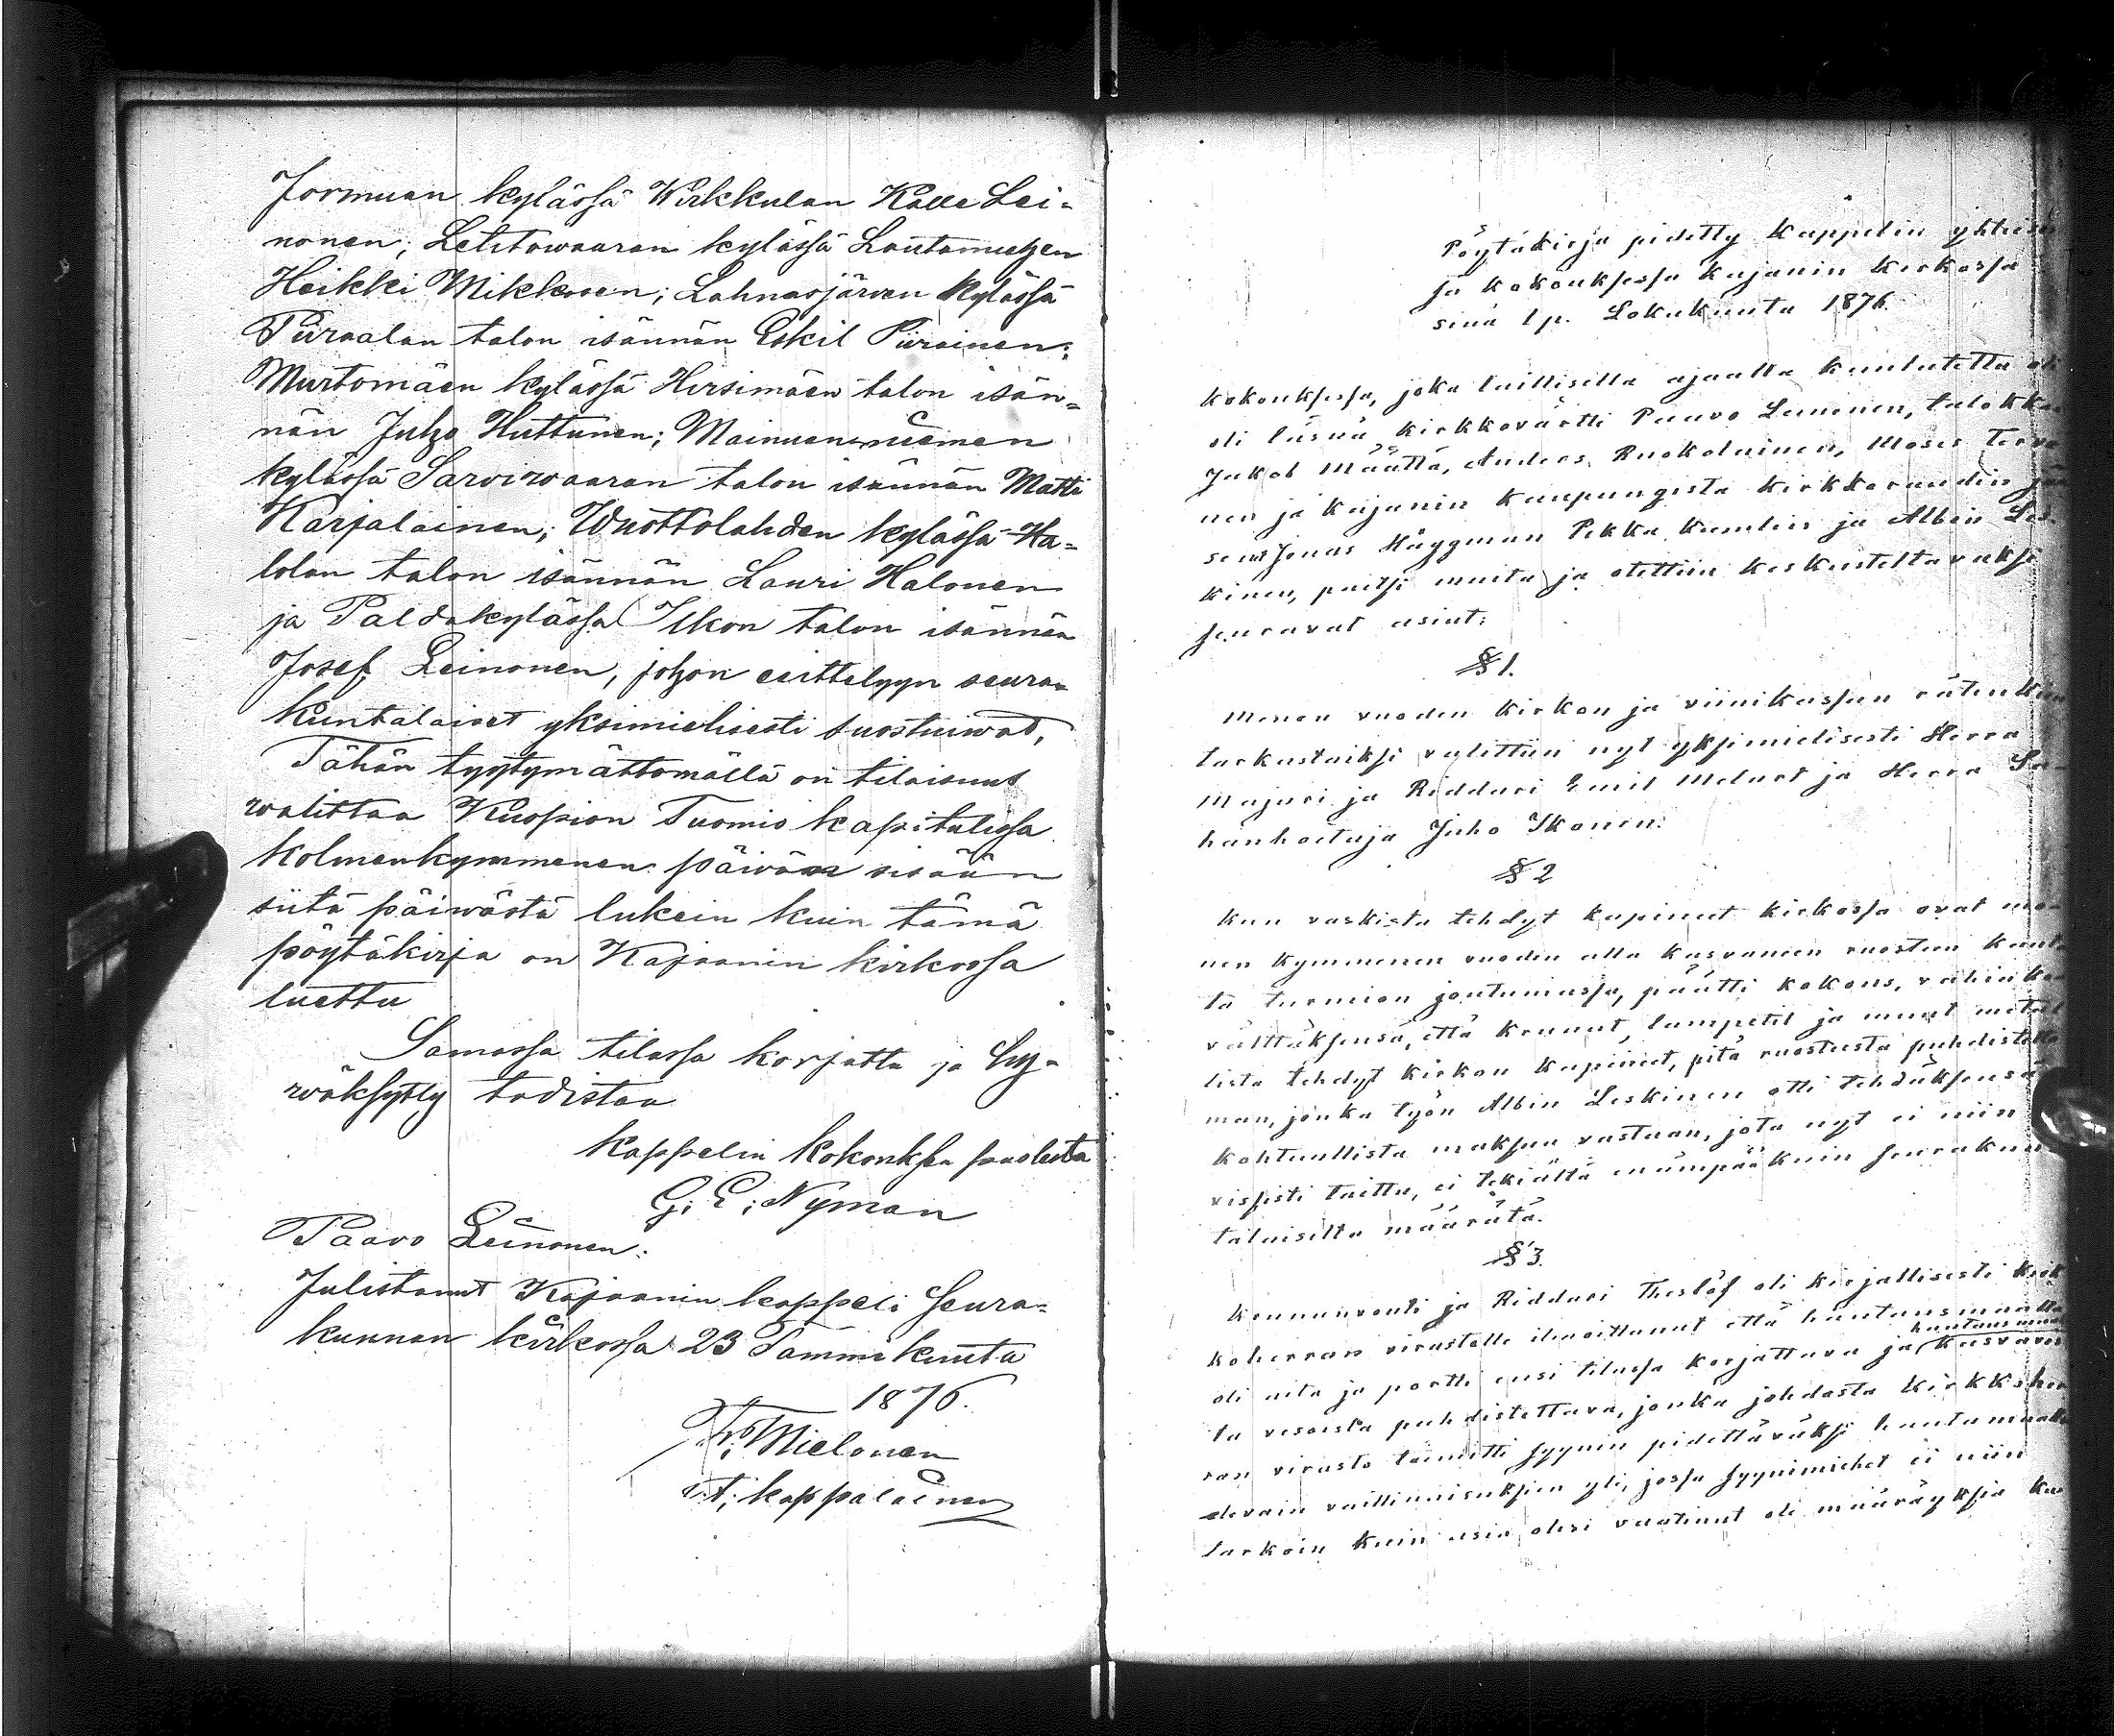 Jormuan kylässä Wirkkulan Kalle Lei-
nonen; Lehtowaaran kylässä Lautamiehen
Heikki Mikkosen; Lahnasjärwen kylässä
Piiraalan talon isännän Eskil Piirainen;
Murtomäen kylässä Hirsimäen talon isän-
nän Juho Huttunen; Mainuanniemen
kylässä Sarwiwaaran talon isännän Matti
Karjalainen; Wuottolahden kylässä Ha-
lolan talon isännän Lauri Halonen
ja Paldakylässä Ilkon talon isännän
Josef Leinonen, johon esittelyyn seura-
kuntalaiset yksimielisesti suostuiwat,
Tähän tyytymättömällä on tilaisuus
walittaa Kuopion Tuomio kapitulissa
kolmenkymmenen päiwän sisään
siitä päiwästä lukein kuin tämä
pöytäkirja on Kajaanin kirkossa
luettu
Samassa tilassa korjattu ja hy-
wäksytty todistaa
kappelin kokouksen puolesta
G. E. Nyman
Paavo Leinonen.
Julistanut Kajaanin kappeli seura-
kunnan kirkossa 23 Tammikuuta
1876.
Fr. Mielonen
v.t. kappalainen
Pöytäkirja pidetty kappelin yhteises-
sä kokouksessa Kajanin kirkossa
sinä 1 p. Lokakuuta 1876.
Kokouksessa, joka laillisella ajalla kuulutettu oli
oli läsnä kirkkovärtti Paavo Leinonen, talokkaat
Jakob Määttä, Anders Ruokolainen, Moses Terva-
nen ja Kajanin kaupungista kirkkoraadin jä-
senet Jonas Häggman Pekka Kumlin ja Albin Les-
kinen, paitsi muita ja otettiin keskusteltavaksi
seuravat asiat:
§ 1.
Menen vuoden kirkon ja viinikassan rätinkiin
tarkastajiksi valittiin nyt yksimielisesti Herra
Majuri ja Ridduri Emil Melart ja Herra Sa-
hanhoitaja Juho Ikonen.
§ 2
Kun vaskista tehdyt kapineet kirkossa ovat mo-
nen kymmenen vuoden alla kasvaneen ruostun kautta
turmion joutumassa, päätti kokous, vahinkoa
välttäksensä, että kruunut, lampetit ja muut metal-
lista tehdyt kirkon kapineet, pitä ruosteesta puhdistetta-
man, jonka työn Albin Leskinen otti tehdäksensä
kohtuullista maksua vastaan, jota nyt ei niin
vissisti taittu, ei tekiältä enämpää kuin seurakun-
talaisilta määrätä.
§ 3.
Kruununvouti ja Ridduri Theslöf oli kirjallisesti kirk-
koherran virastolle ilmoittanut että hautausmaalla
oli aita ja portti ensi tilassa korjattava ja hautausmaa kasvavis-
ta vesoista puhdistettava, jonka johdosta kirkkoher-
ran virasto toimitti syynin pidettäväksi hautamaalla
olevain vaillinaisuksien yli, jossa syynimiehet ei niin
tarkoin kuin asia olisi vaatinut ole määräyksiä